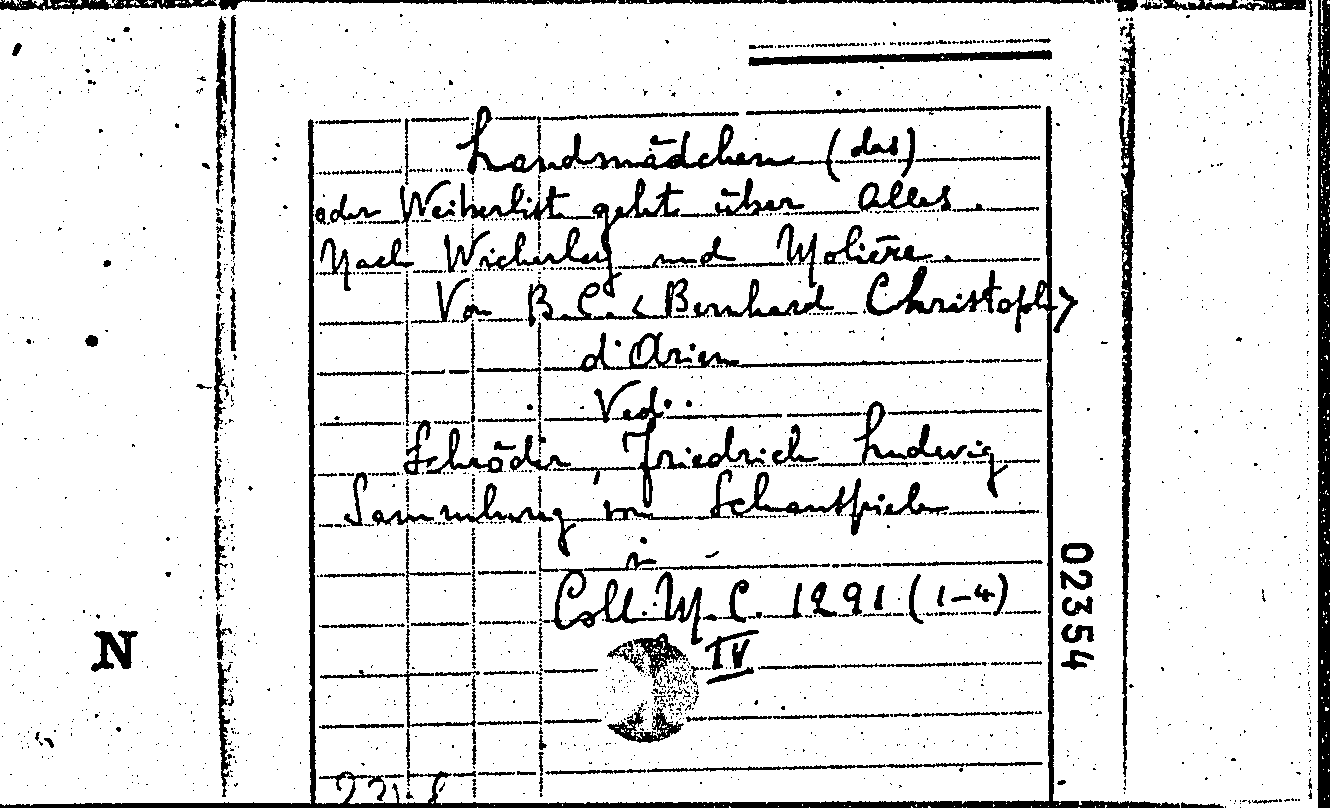 Landmädchen (das)
oder Weiberlist geht über Alles.
Nach Wicherley und Molière.
Von B.C. < Bernhard Christoph>
d'Arien
Ved:.
Schröder, Friedrich Ludwig
Sammlung von Schauspiele
Coll. M. C. 1291 (1-4)
IV
02354
N